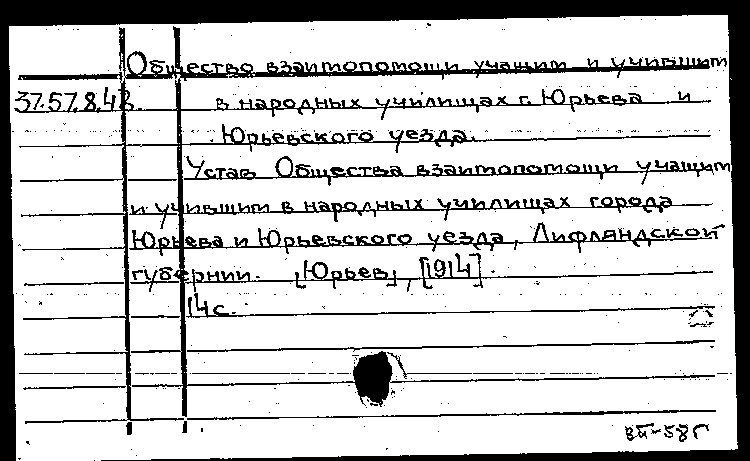 Общество взаимопомощи учащим и учившим
37.57.8.43. в народных училищах г. Юрьева и
Юрьевского уезда.
Устав Общества взаимопомощи учащим
и учившим в народных училищах города
Юрьева и Юрьевского уезда, Лифляндской
губернии. [Юрьев], [1914].
14 с.